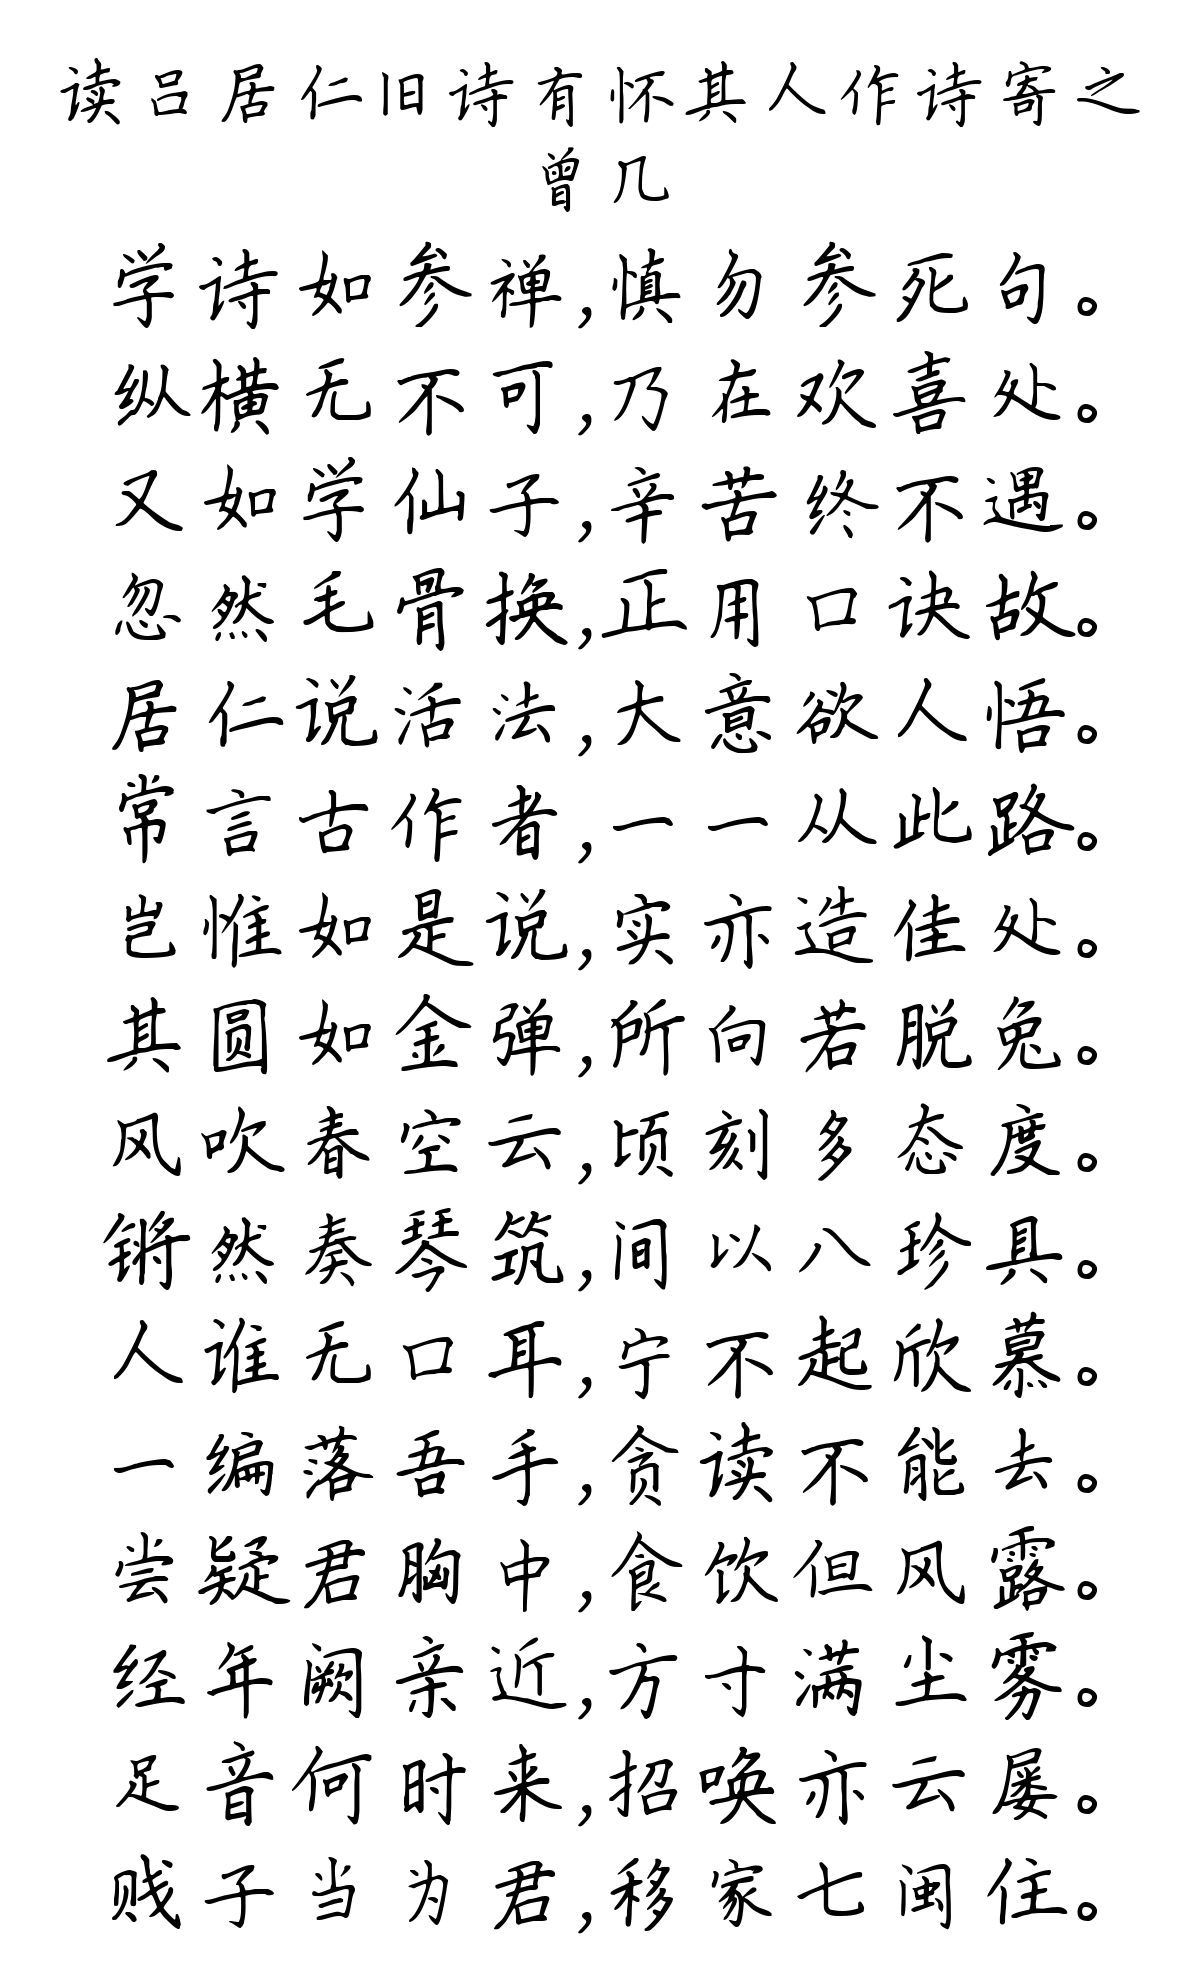 读吕居仁旧诗有怀其人作诗寄之
曾几
学诗如参禅,慎勿参死句。
纵横无不可,乃在欢喜处。
又如学仙子,辛苦终不遇。
忽然毛骨换,正用口诀故。
居仁说活法,大意欲人悟。
常言古作者,一一从此路。
岂惟如是说,实亦造佳处。
其圆如金弹,所向若脱兔。
风吹春空云,顷刻多态度。
锵然奏琴筑,间以八珍具。
人谁无口耳,宁不起欣慕。
一编落吾手,贪读不能去。
尝疑君胸中,食饮但风露。
经年阙亲近,方寸满尘雾。
足音何时来,招唤亦云屡。
贱子当为君,移家七闽住。